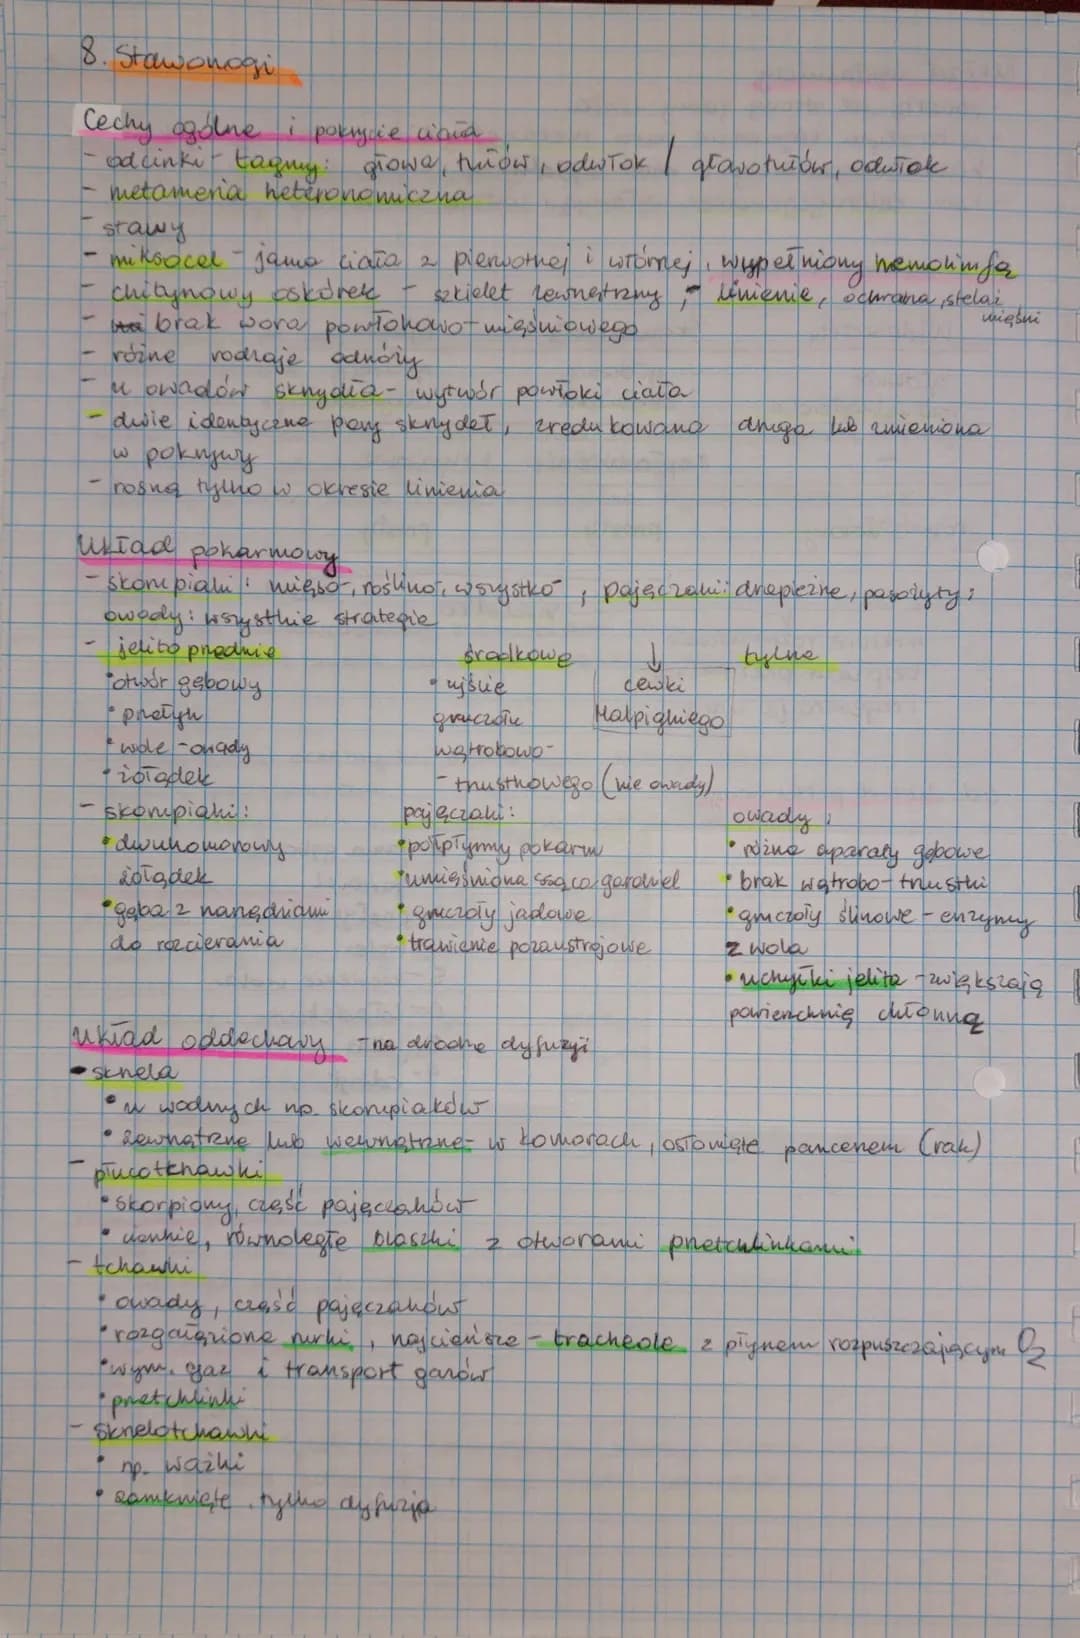 8. Stawonogi
Cechy ogólne i pokrycie ciała
- odcinki - tagmy: głowa, tułów, odwłok / głowotułów, odwłok
- metameria heteronomiczna
- stawy
- miksocel - jama ciała z pierwotnej i wtórnej, wypełniony hemolimfą
- chitynowy oskórek - szkielet zewnętrzny, - linienie, ochrona, stelaż
mięśni
- brak wora powłokowo-mięśniowego
- różne rodzaje odnóży
- u owadów skrzydła - wytwór powłoki ciała
- dwie identyczne pary skrzydeł, zredukowana druga lub zmieniona
w pokrywy
- rosną tylko w okresie linienia
Układ pokarmowy
- skorupiaki: mięso-, roślino-, wszystko-, pajęczaki: drapieżne, pasożyty;
owady: wszystkie strategie
- jelito przednie środkowe ↓ tylne
• otwór gębowy • ujście cewki
• przełyk gruczołu Malpighiego
• wole - owady wątrobowo-
• żołądek - trzustkowego (nie owady)
- skorupiaki: pajęczaki: owady:
• dwukomorowy • półpłynny pokarm • różne aparaty gębowe
żołądek • umięśniona ssąca gardziel • brak wątrobo-trzustki
• gęba z narządziami • gruczoły jadowe • gruczoły ślinowe - enzymy
do rozcierania • trawienie pozaustrojowe z wola
• uchyłki jelita - zwiększają
powierzchnię chłonną
Układ oddechowy - na drodze dyfuzji
- skrzela
• u wodnych np. skorupiaków
• zewnętrzne lub wewnętrzne - w komorach, osłonięte pancerzem (rak)
- płucotchawki
• skorpiony, część pajęczaków
• cienkie, równoległe blaszki z otworami przetchlinkami
- tchawki
• owady, część pajęczaków
• rozgałęzione rurki, najcieńsze - tracheole z płynem rozpuszczającym O₂
• wym. gaz i transport gazów
• przetchlinki
- skrzelotchawki
• np. ważki
• zamknięte, tylko dyfuzja